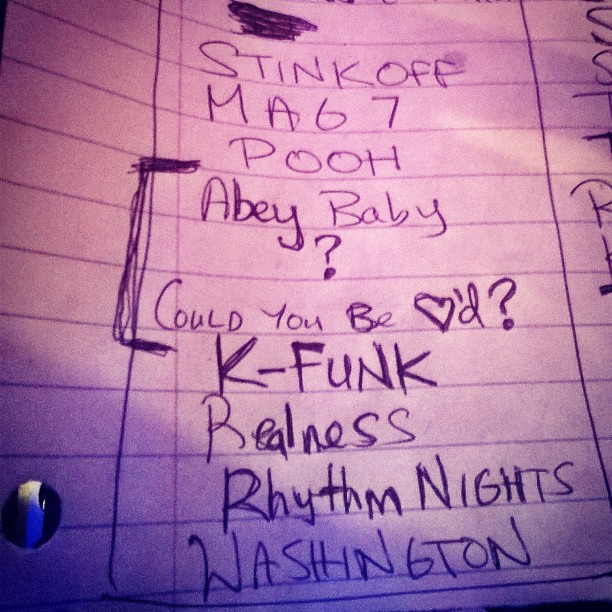 STINKOFF
MAG 7
POOH
Abey Baby
?
COULD YOU BE ♡'d?
K-FUNK
Realness
Rhythm NIGHTS
WASHINGTON